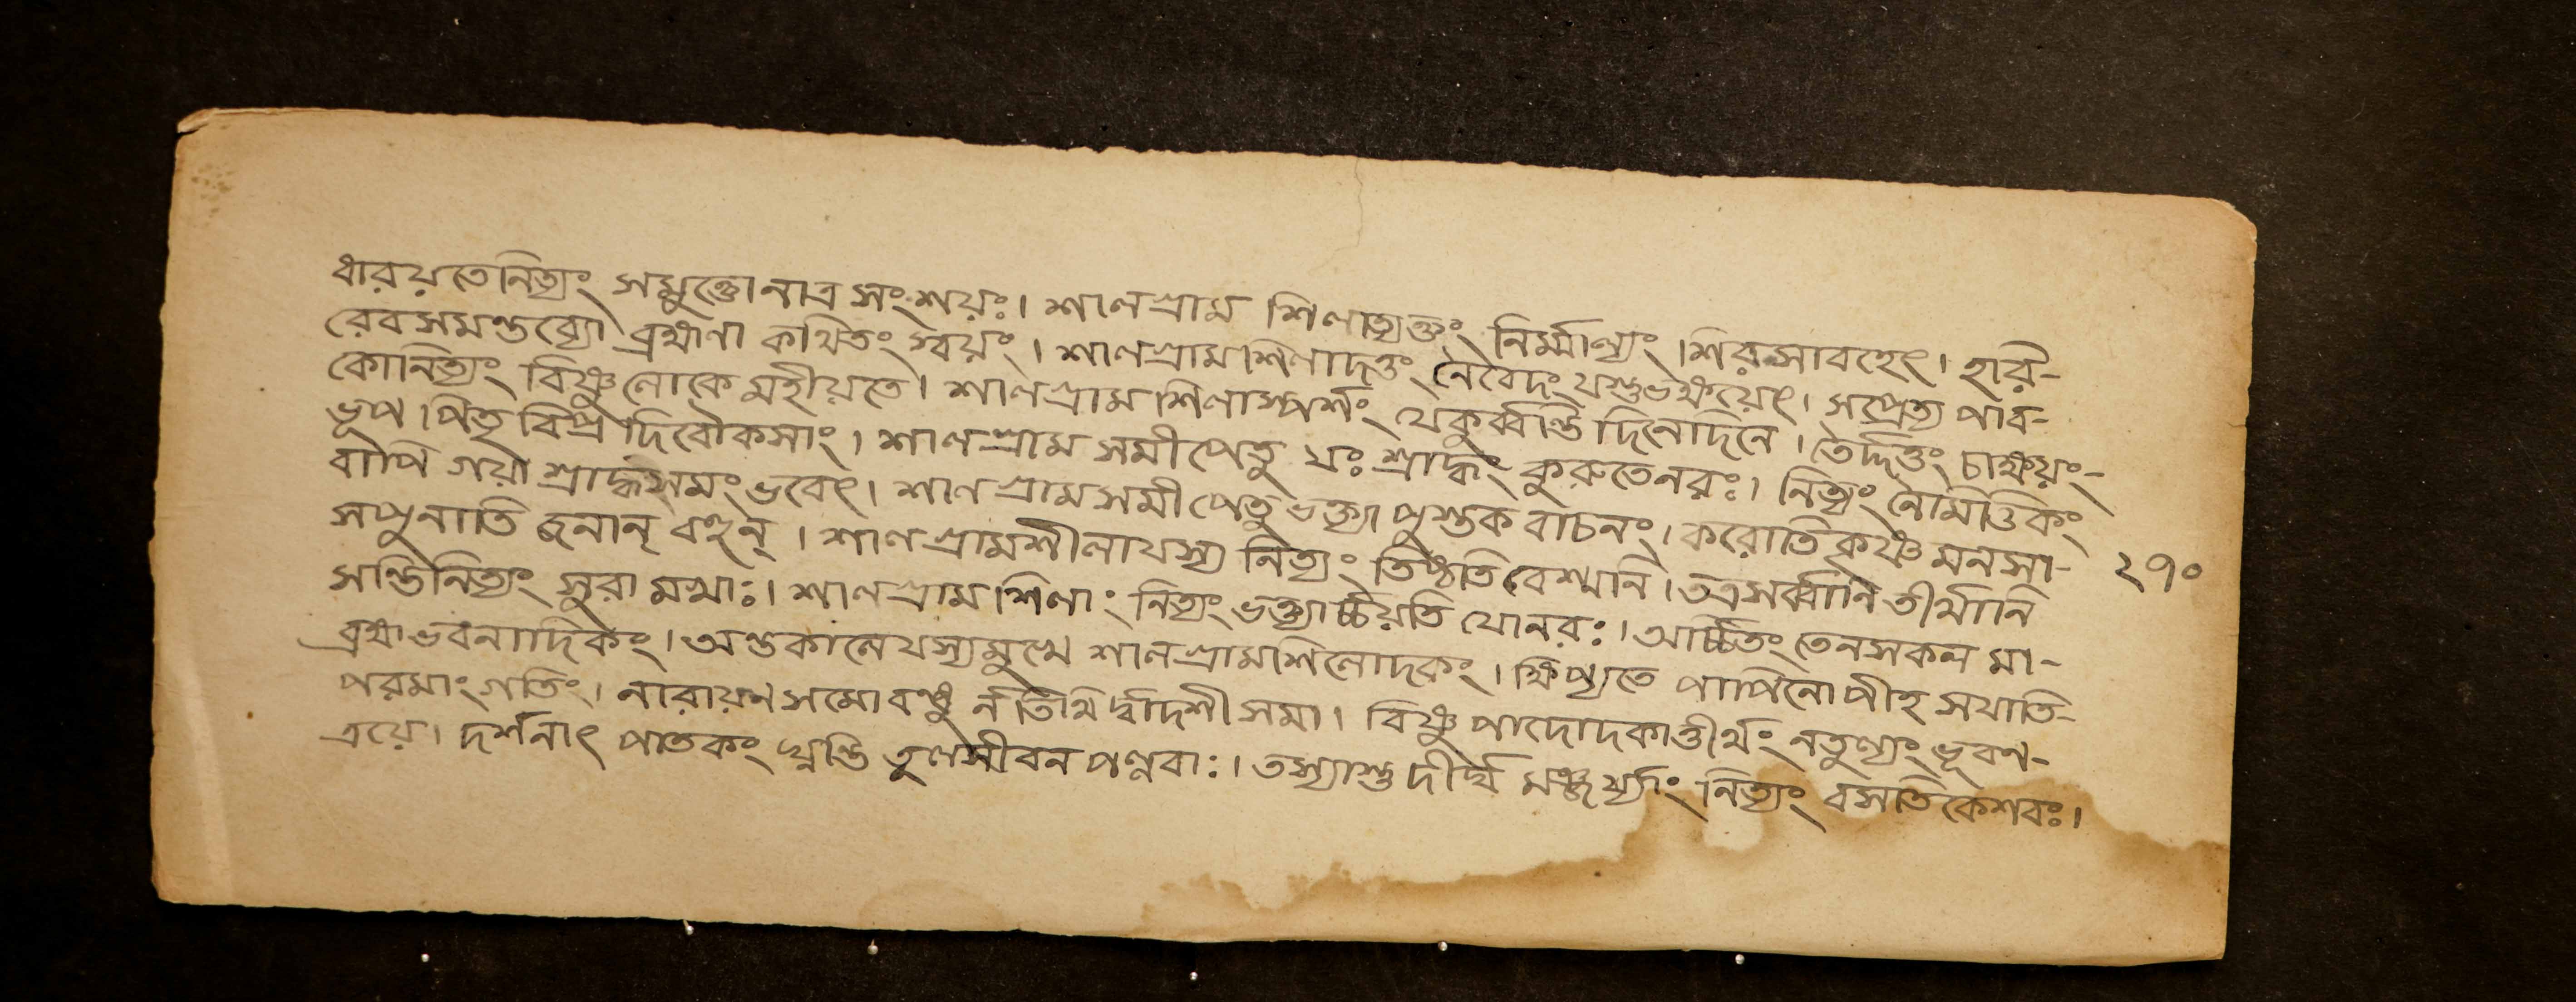 ধারয়তেনিত্যং সমুক্তোনাত্র সংশয়ঃ। শালগ্রাম শিলাত্যক্তং নির্ম্মাল্যং শিরসাবহেৎ। হারী-
রেবসমন্তব্যো ব্রহ্মণা কথিতং স্বয়ং। শালগ্রামশিলাদত্তং নৈবেদং যস্তুভক্ষয়েৎ। সপ্রেত্য পাব-
কোনিত্যং বিষ্ণুলোকে মহীয়তে। শালগ্রামশিলাস্পর্শং যেকুর্ব্বন্তি দিনোদিনে। তৈর্দ্দত্তং চাক্ষয়ং-
ভূপ পিতৃ বিপ্র দিবৌকসাং। শালগ্রাম সমীপেতু যঃ শ্রাদ্ধং কুরুতেনরঃ। নিত্যং নৈমিত্তিকং
বাপি গয়া শ্রাদ্ধসমং ভবেৎ। শালগ্রামসমীপেতু ভক্ত্যা পুস্তক বাচনং। করোতি কৃষ্ণ মনসা-
সপুনাতি জনান্ বহূন্। শালগ্রামশীলাযস্য নিত্যং তিষ্ঠতি বেশ্মনি। তত্রসর্ব্বানি তীর্থানি
২৭০
সন্তিনিত্যং সুরা মখাঃ। শালগ্রাম শিলাং নিত্যং ভক্ত্যার্চ্চয়তি যোনরঃ। অর্চ্চিতং তেনসকল মা-
ব্রহ্মভবনাদিকং। অন্তকালেযস্যমুখে শালগ্রামশিলোদকং। ক্ষিপ্যতে পাপিনোপীহ সযাতি-
পরমাং গতিং। নারায়ণসমোবন্ধু র্ন তিথি র্দ্বাদশী সমা। বিষ্ণু পাদোদকাত্তীর্থং নতুল্যং ভূবন-
ত্রয়ে। দর্শনাৎ পাতকং ঘ্নন্তি তুলসীবন পল্লবাঃ। তস্যাস্তু দীর্ঘ মঞ্জর্য্যাং নিত্যং বসতি কেশবঃ।